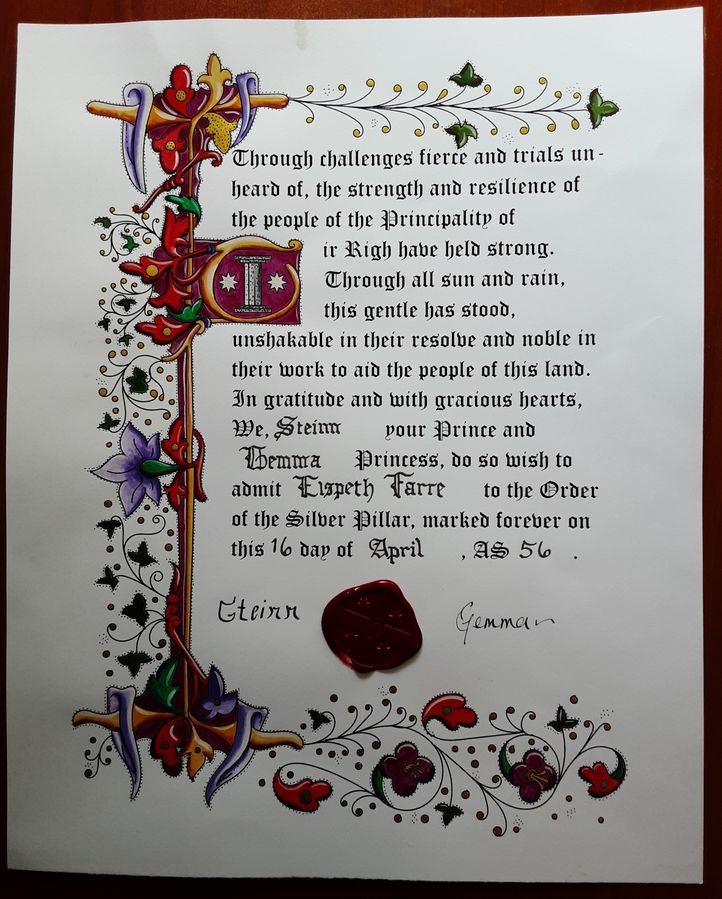 Through challenges fierce and trials un-
heard of, the strength and resilience of
the people of the Principality of
ir Righ have held strong.
Through all sun and rain,
this gentle has stood,
unshakable in their resolve and noble in
their work to aid the people of this land.
In gratitude and with gracious hearts,
We, Steinn your Prince and
Gemma Princess, do so wish to
admit Elspeth Farre to the Order
of the Silver Pillar, marked forever on
this 16 day of April , AS 56 .
Steinn Gemma